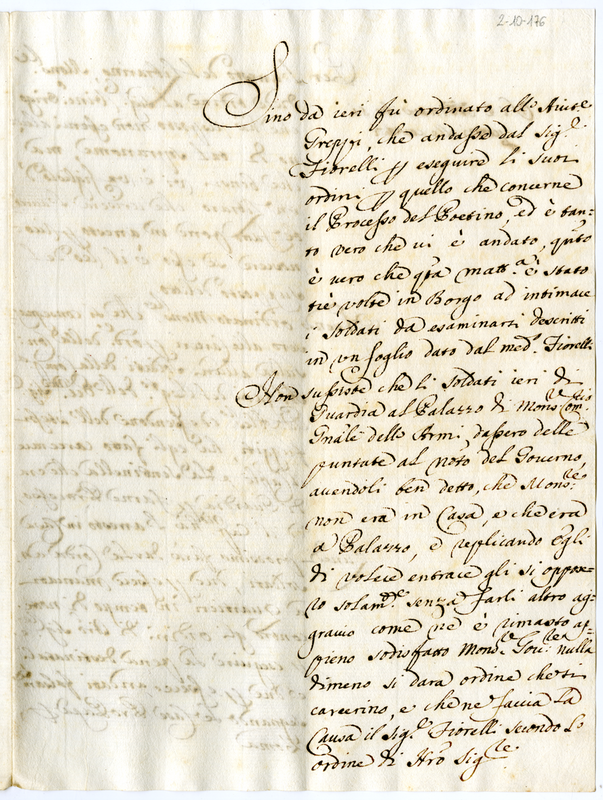 2-10-176
Sino da ieri fù ordinato all'Aiute
Greppi, che andasse dal Sig.r
Fiorelli p eseguire li suoi
ordini p quello che concerne
il Processo del Poetino, ed è tan-
to vero che vi è andato, qnto
è vero che qta matt.a è stato
trè volte in Borgo ad intimare
i Soldati da esaminarsi descritti
in un foglio dato dal med.o Fiorelli
Non sussiste che li Soldati ieri di
Guardia al Palazzo di Mons.r Com.rio
Gnãle delle Armi, dassero delle
puntate al noto del Governo,
avendoli ben detto, che Mons.re
non era in Casa, e che era
a Palazzo, e replicando egli
di volere entrare gli si oppose-
ro solam.te senza farli altro ag-
gravio come ne è rimasto ap-
pieno sodisfatto Mons.r Gov.re nulla
dimeno si darà ordine che si
carcerino, e che ne faccia la
Causa il Sig.r Fiorelli secondo l'
ordine di Nro Sig.re